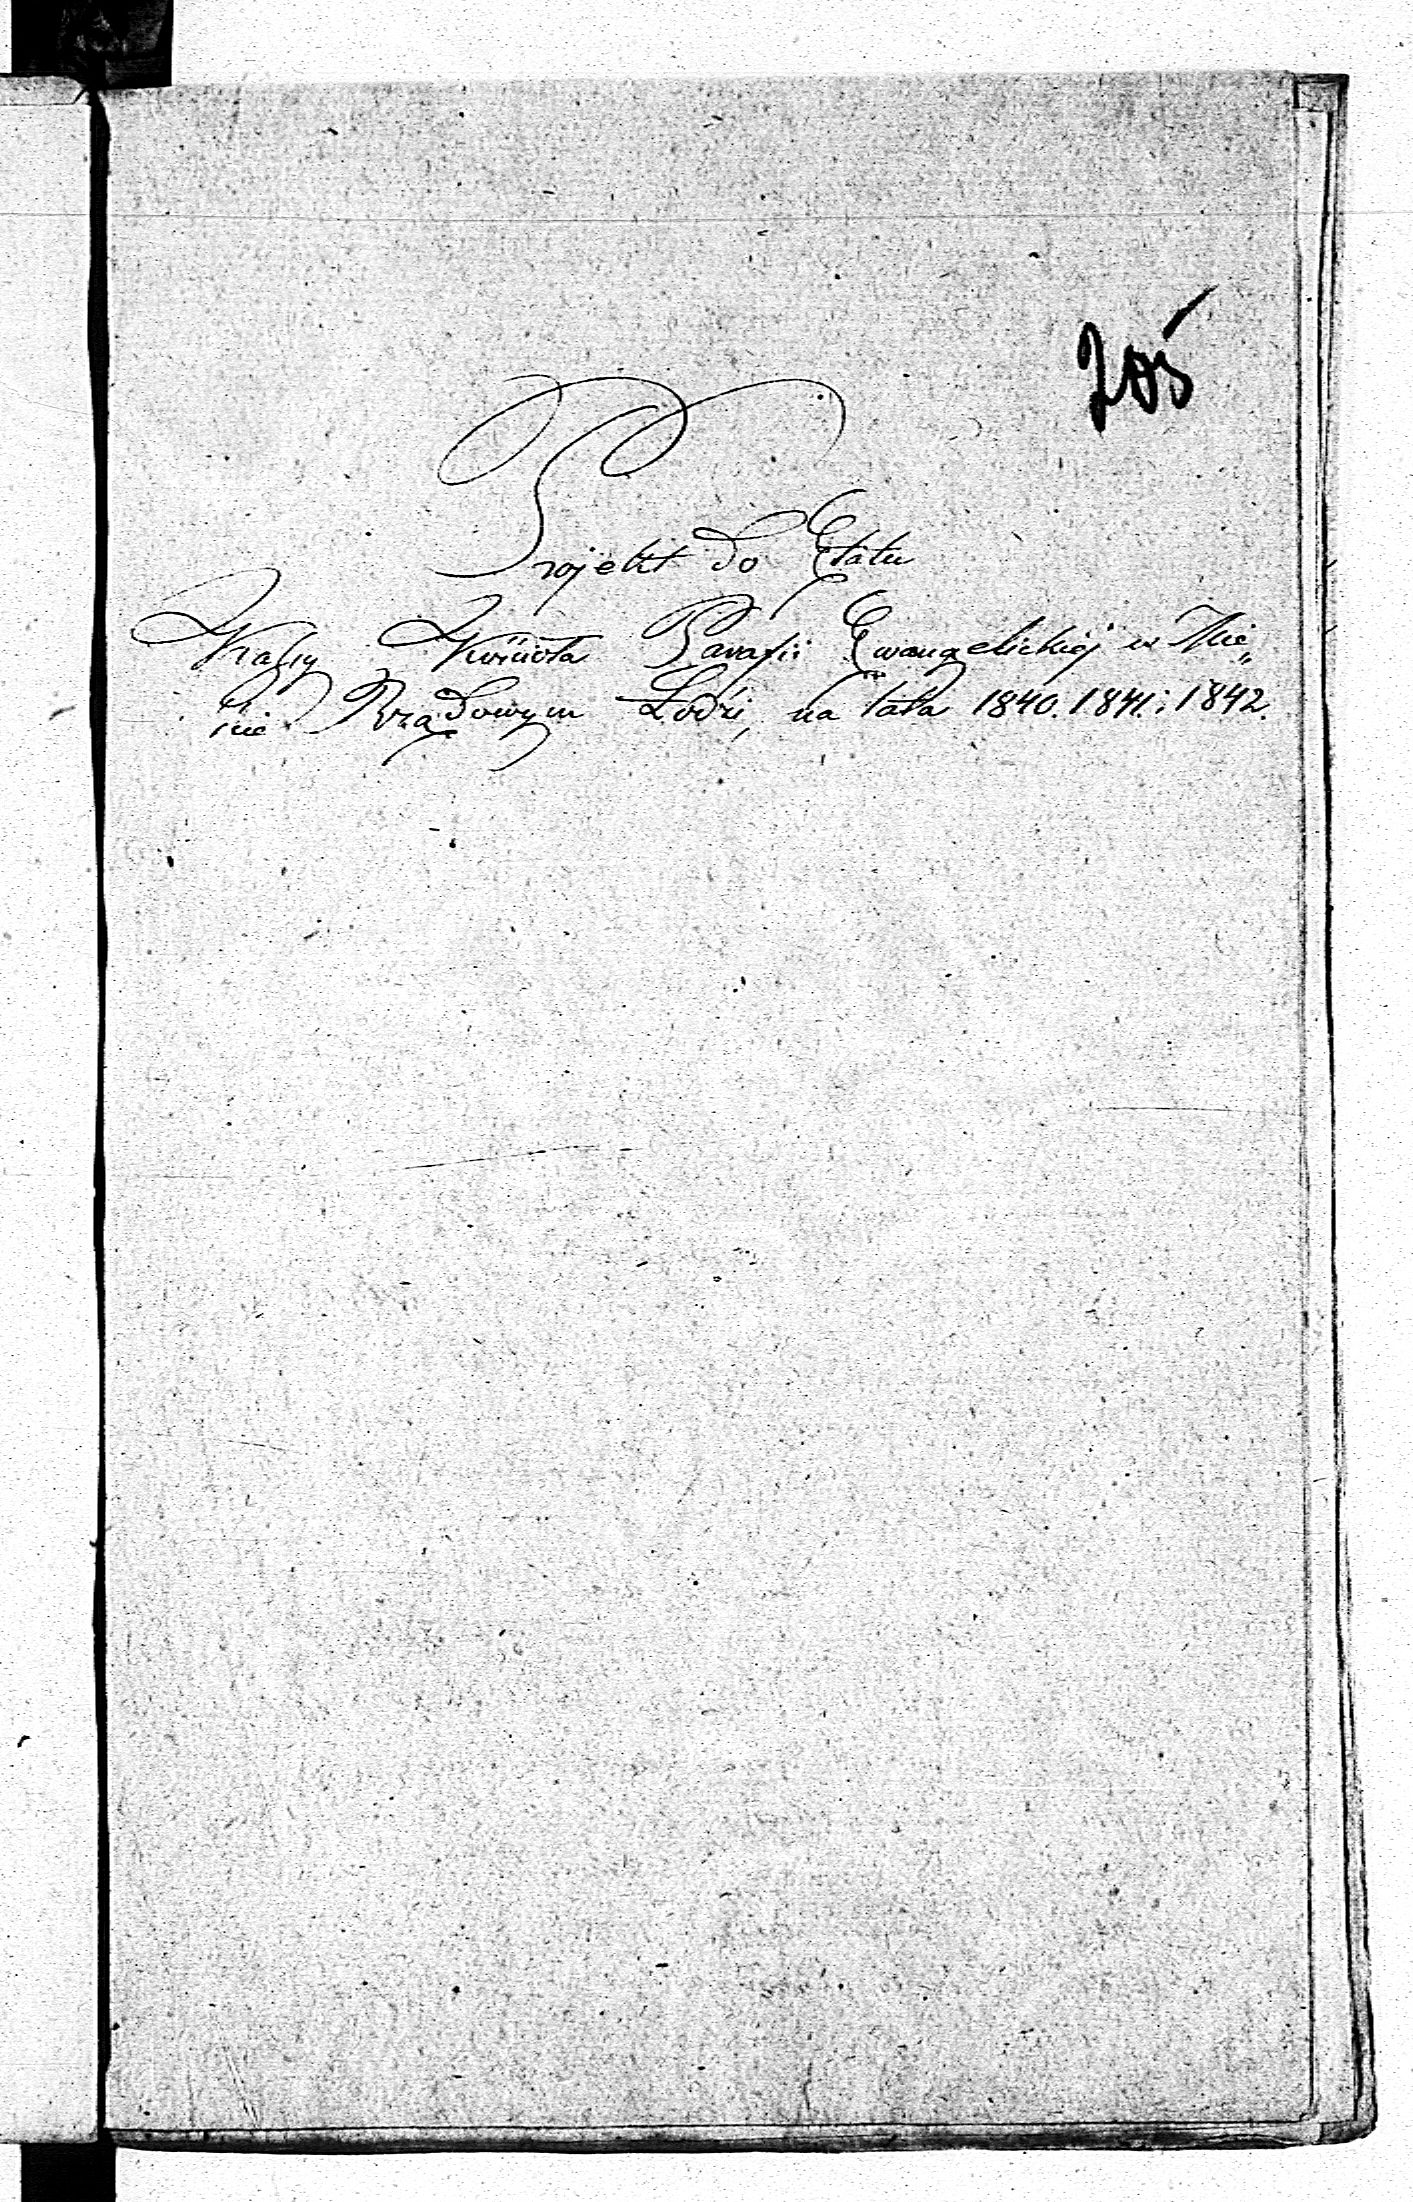 205
Projekt do Etatu
Kassy Kościoła Parafii Ewangelickiej w Mie„
ście Rządowym Łodzi, na lata 1840. 1841. i 1842.